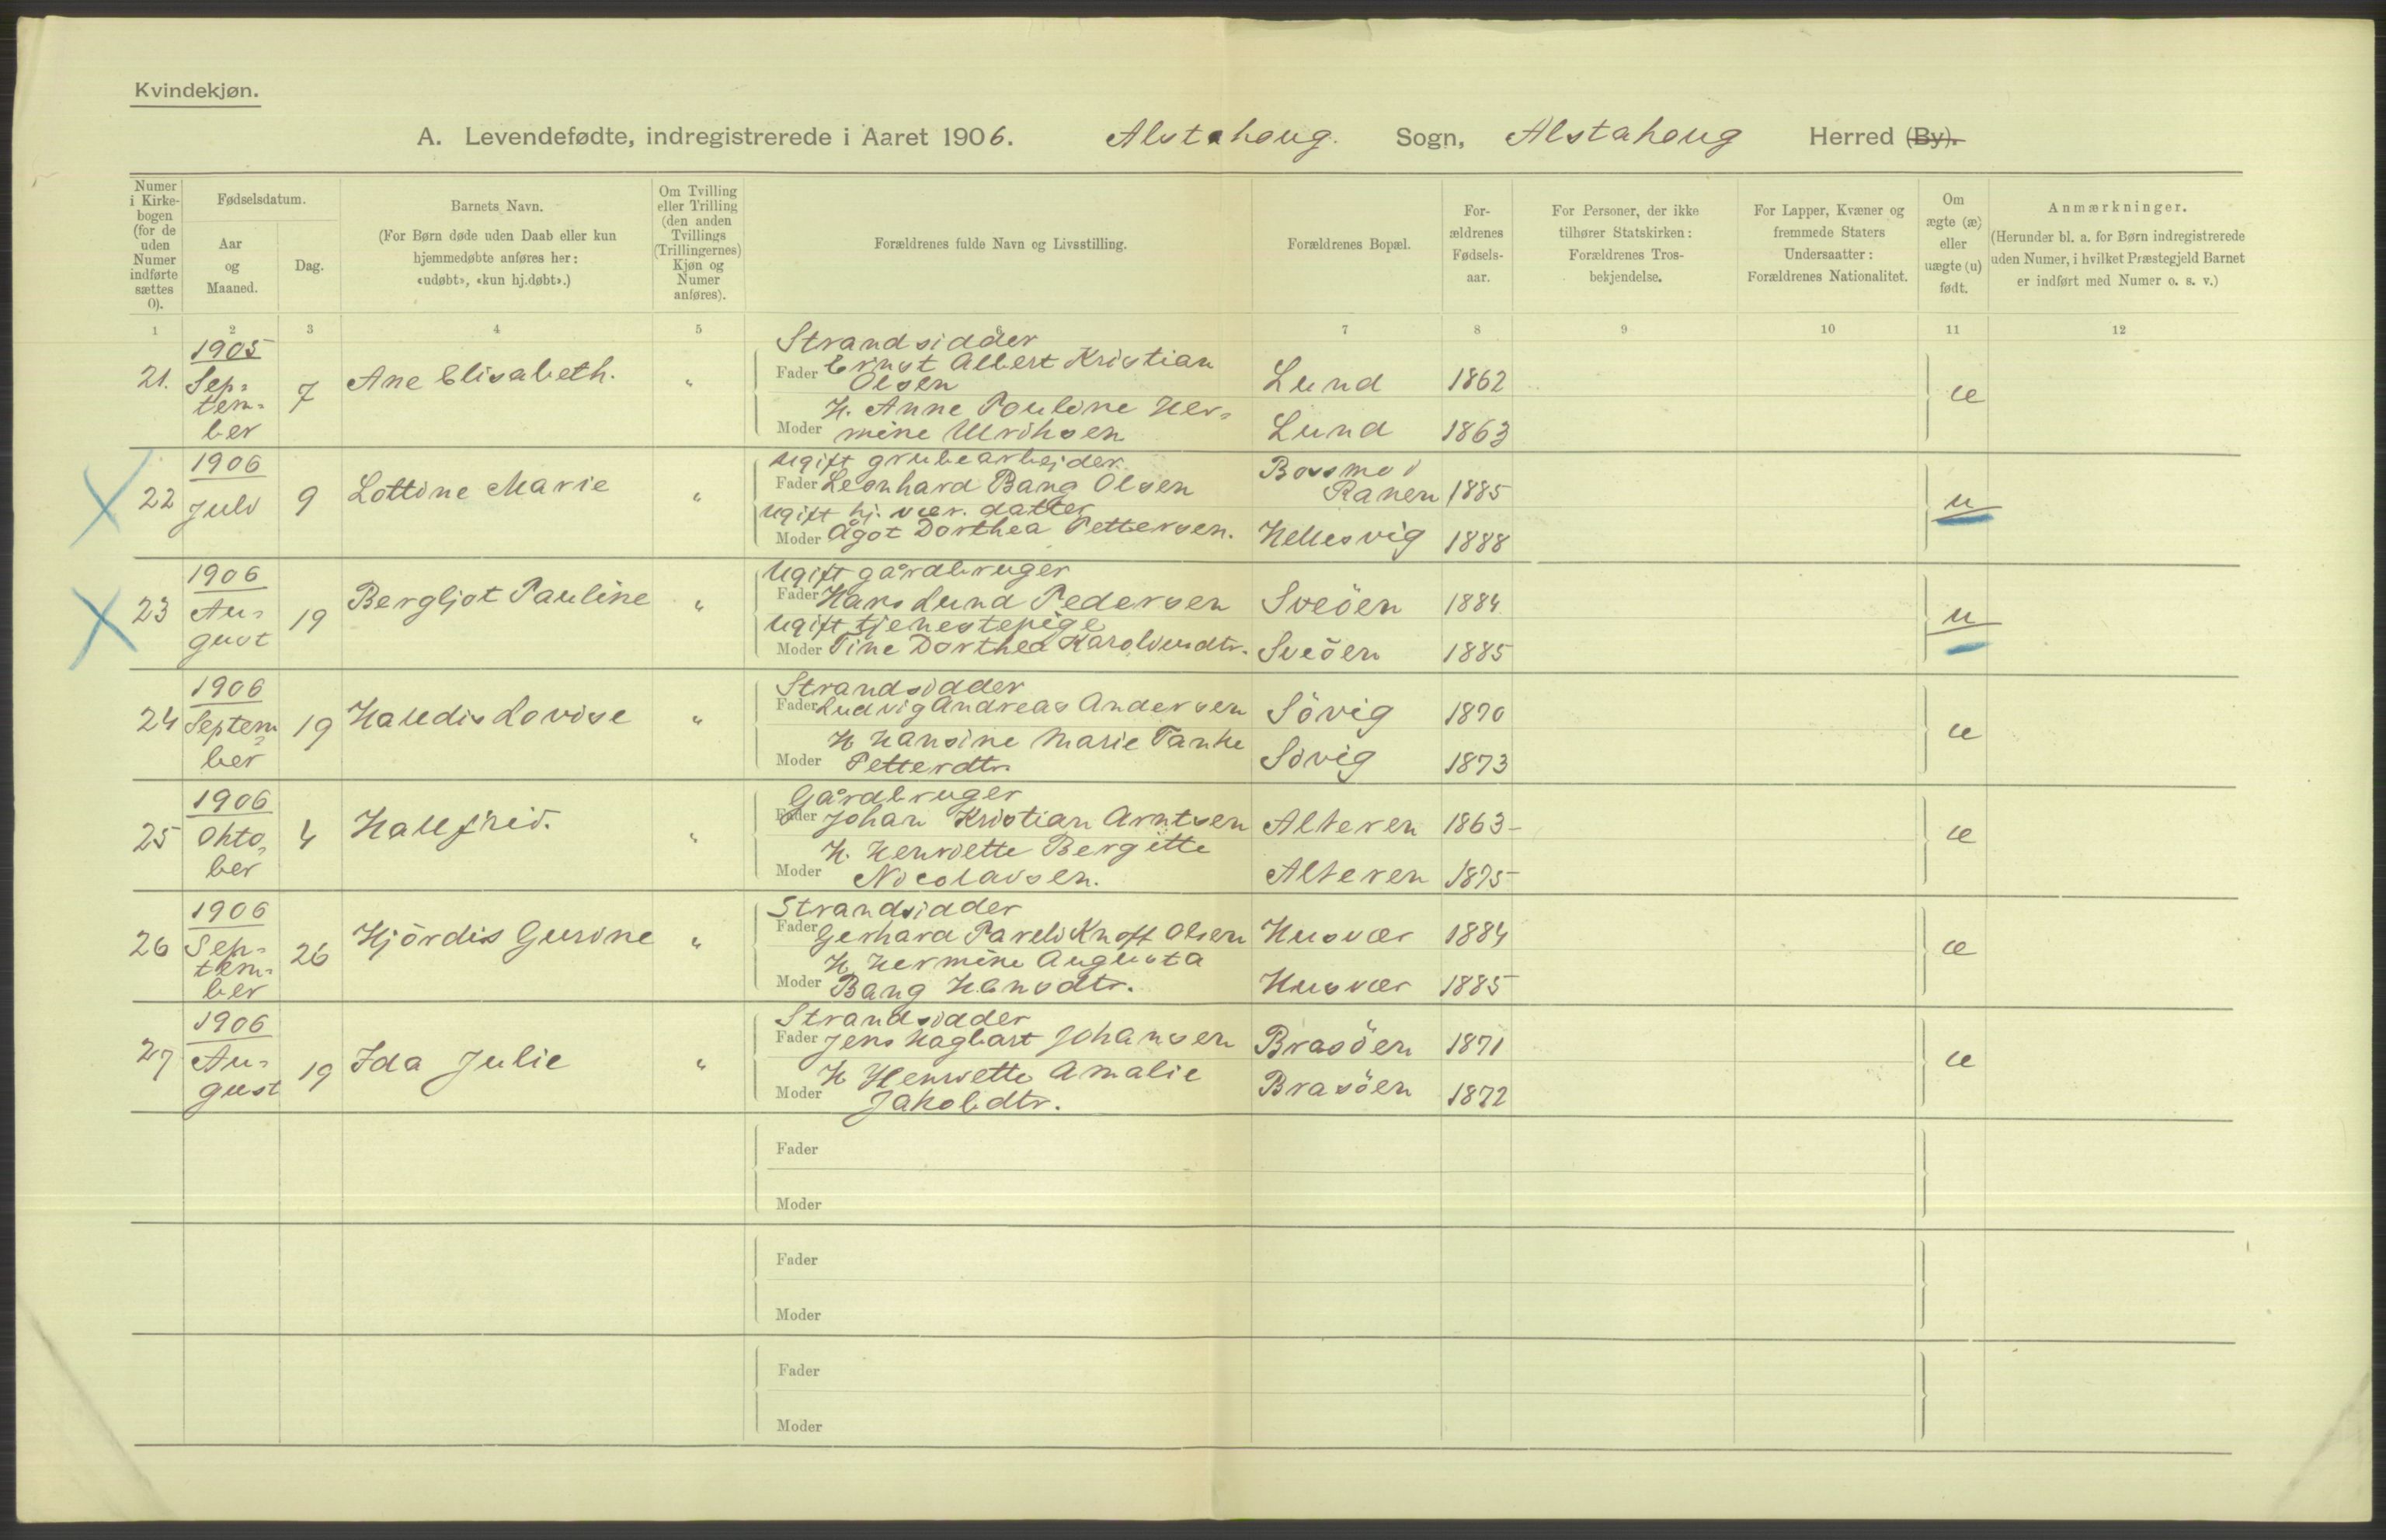 Kvindekjøn.
A. Levendefødte, indregistrerede i Aaret 1906. Alstahoug. Sogn, Alstahoug Herred (By).
Numer i Kirkebogen (for de uden Numer indførte sættes 0).
Fødselsdatum.
Aar og Maaned.
Dag.
Barnets Navn.
(For Børn døde uden Daab eller kun hjemmedøbte anføres her: «udøbt», «kun hj.døbt».)
Om Tvilling eller Trilling (den anden Tvillings (Trillingernes) Kjøn og Numer anføres).
Forældrenes fulde Navn og Livsstilling.
Forældrenes Bopæl.
Forældrenes Fødselsaar.
For Personer, der ikke tilhører Statskirken: Forældrenes Trosbekjendelse.
For Lapper, Kvæner og fremmede Staters Undersaatter: Forældrenes Nationalitet.
Om ægte (æ) eller uægte (u) født.
Anmærkninger.
(Herunder bl. a. for Børn indregistrerede uden Numer, i hvilket Præstegjeld Barnet er indført med Numer o. s. v.)
1 2 3 4 5 6 7 8 9 10 11 12
21. 1905 Sep=tem=ber 7 Ane Elisabeth. "
Strandsidder
Fader Ernst Albert Kristian Olsen Lund 1862
Moder H. Anne Pouline Her=mine Ulriksen Lund 1863
æ
22 1906 Juli 9 Lottine Marie "
Ugift grubearbejder
Fader Leonhard Bang Olsen Bossmo i Ranen 1885
Ugift hj. vær. datter
Moder Ågot Dorthea Pettersen. Hellesvig 1888
u
23 1906 Au=gust 19 Bergljot Pauline "
Ugift gårdbruger
Fader Hans Lund Pedersen Sveöen 1884
Ugift tjenestepige
Moder Tine Dorthea Karoliusdtr. Sveöen 1885
u
24 1906 Septem=ber 19 Halldis Lovise "
Strandsidder
Fader Ludvig Andreas Andersen Sövig 1870
Moder H Hansine Marie Tanke Petterdtr. Sövig 1873
æ
25 1906 Okto=ber 4 Hallfrid. "
Gårdbruger
Fader Johan Kristian Arntsen Alteren 1863
Moder H. Henriette Bergitte Nicolaisen. Alteren 1875
æ
26 1906 Sep=tem=ber 26 Hjördis Gurine "
Strandsidder
Fader Gerhard Pareli Knoff Olsen Husvær 1884
Moder H Hermine Augusta Bang Hansdtr. Husvær 1885
æ
27 1906 Au=gust 19 Ida Julie "
Strandsidder
Fader Jens Hagbart Johansen Brasöen 1871
Moder H Henriette Amalie Jakobdtr. Brasöen 1872
æ
Fader
Moder
Fader
Moder
Fader
Moder